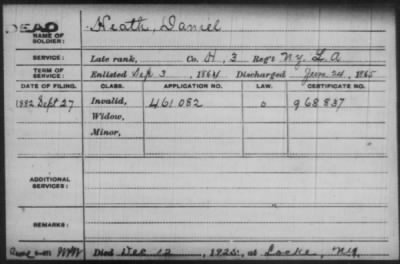 DEAD
NAME OF SOLDIER: Heath, Daniel
SERVICE: Late rank, Co. H, 3 Reg't N.Y. L. A
TERM OF SERVICE: Enlisted Sep 3, 1864 Discharged June 24, 1865
DATE OF FILING. CLASS. APPLICATION NO. LAW. CERTIFICATE NO.
1882 Sept 27 Invalid, 461 082 o 968 837
Widow,
Minor,
ADDITIONAL SERVICES:
REMARKS:
Died Dec 12, 1925, at Locke, N.Y.